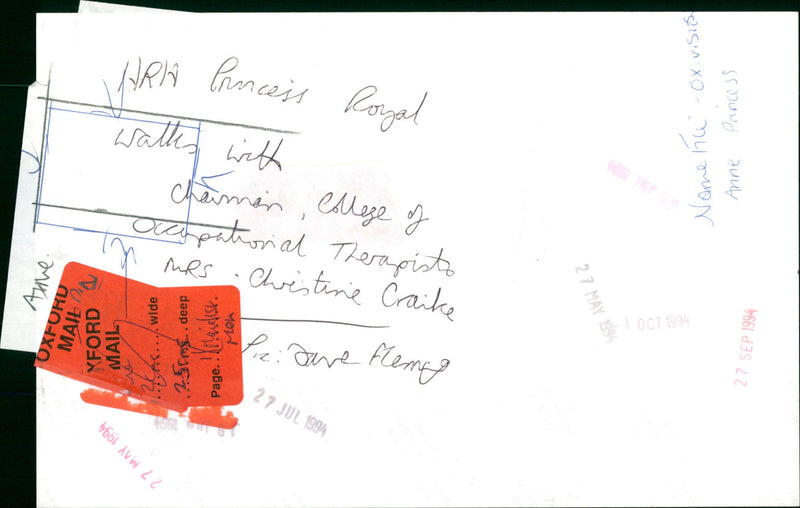 HRH Princess Royal
walks with
Chairman, College of
Occupational Therapists
MRS. Christine Craike
Pic: Dave Fleming
Name File - OX. VISITS
Anne Princess
Anne.
OXFORD
MAIL
OXFORD
MAIL
wide
25cms deep
Page
Mon
27 JUL 1994
27 MAY 1994
27 MAY 1994
1 OCT 1994
27 SEP 1994